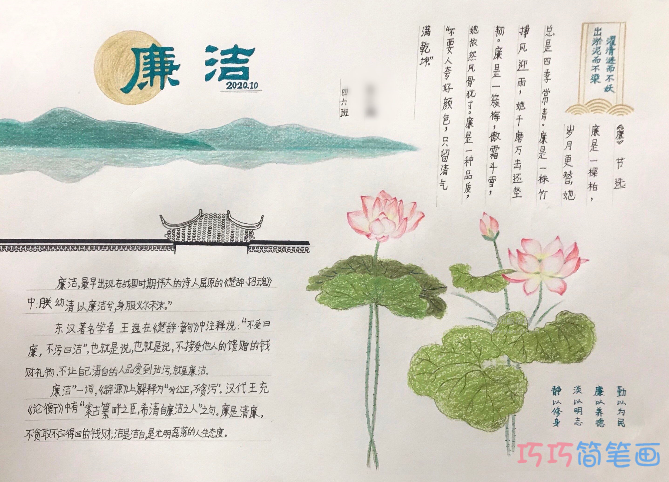 廉洁
2020.10
出淤泥而不染
濯清涟而不妖
《廉》节选
廉是一棵柏，
岁月更替她
总是四季常青。廉是一棵竹
挣风迎雨，她千磨万击还坚
韧。廉是一簇梅，傲霜斗雪，
她依然风骨犹了。廉是一种品质，
"不要人夸好颜色，只留清气
满乾坤。"
四六班
廉洁，最早出现在战国时期伟大的诗人屈原的《楚辞·招魂》
中："朕幼清以廉洁兮，身服义尔未沫。"
东汉著名学者王逸在《楚辞·章句》中注释说："不受曰
廉，不污曰洁"，也就是说，也就是说，不接受他人的馈赠的钱
财礼物，不让自己清白的人品受到玷污，就是廉洁。
廉洁"一词，《辞源》上解释为"公正，不贪污"。汉代王充
《论衡》中有"案古篡畔之臣，希清白廉洁之人"之句。廉是清廉，
不贪取不应得的钱财；洁是洁白，是光明磊落的人生态度。
勤以为民
廉以养德
淡以明志
静以修身
巧巧简笔画